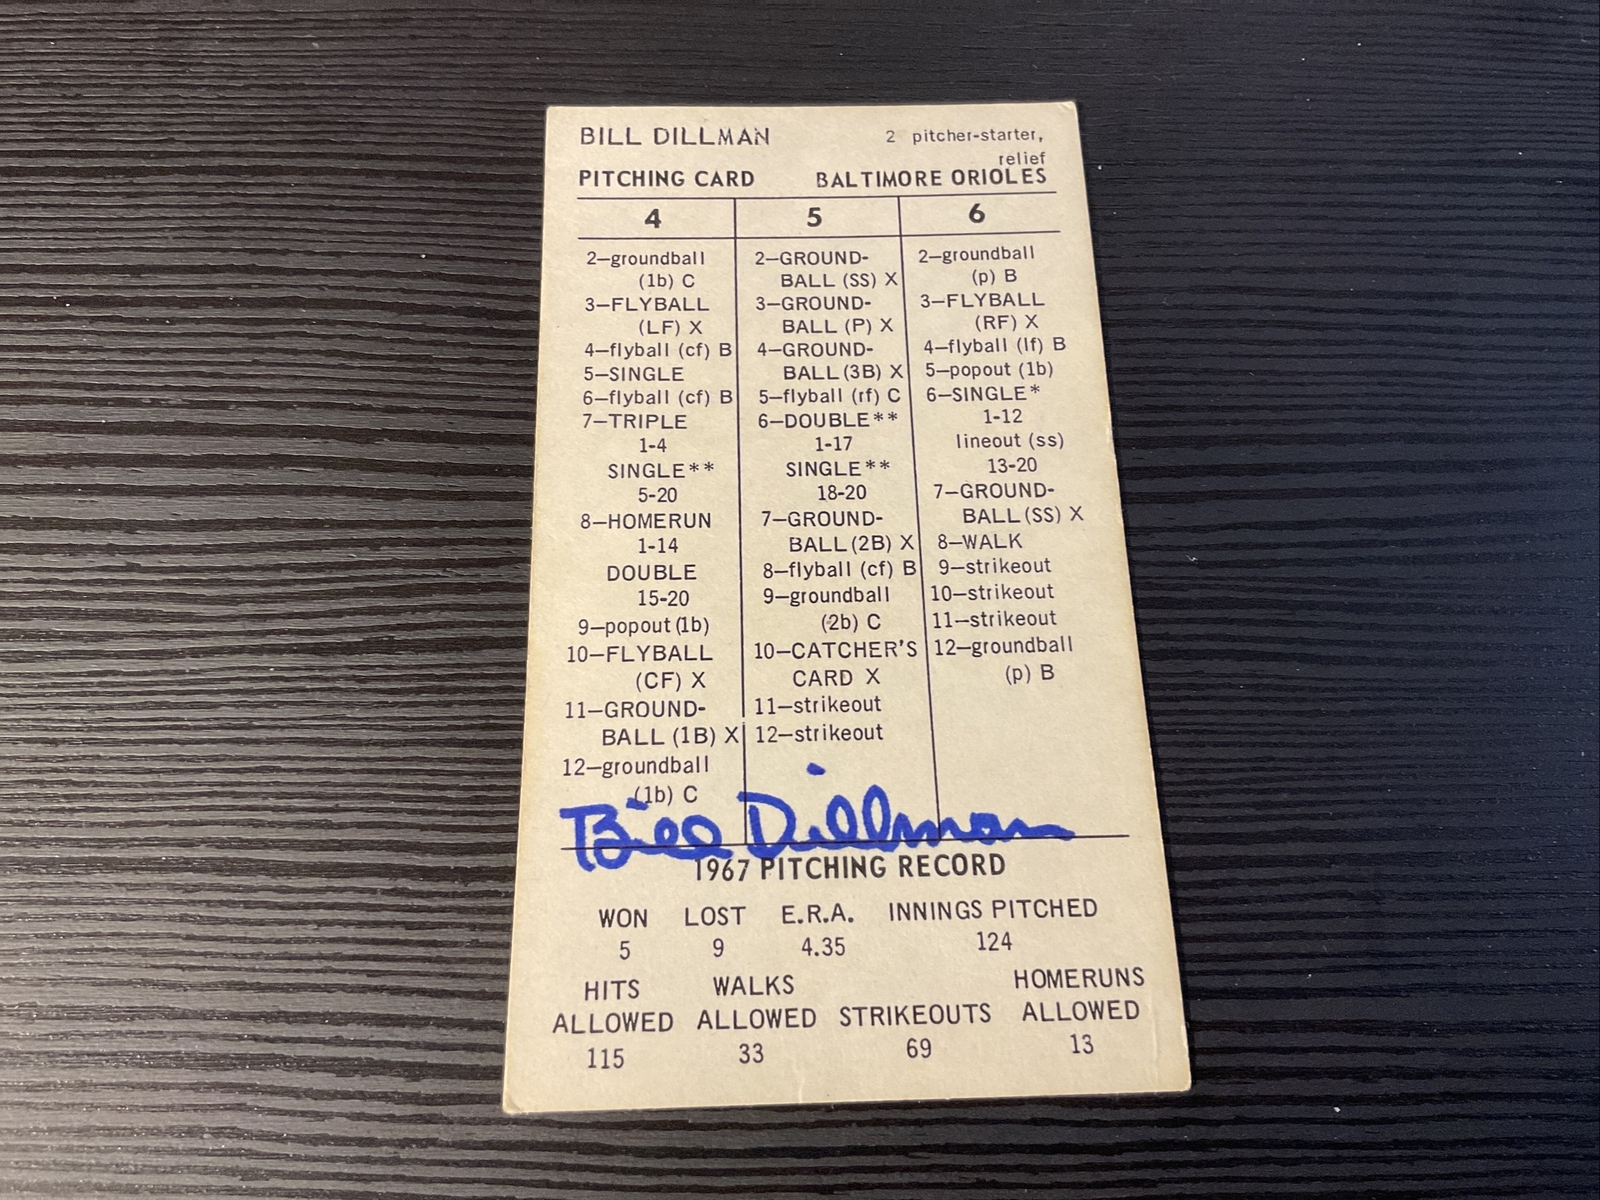 BILL DILLMAN 2 pitcher-starter,
relief
PITCHING CARD BALTIMORE ORIOLES
4
2—groundball
(1b) C
3—FLYBALL
(LF) X
4—flyball (cf) B
5—SINGLE
6—flyball (cf) B
7—TRIPLE
1-4
SINGLE**
5-20
8—HOMERUN
1-14
DOUBLE
15-20
9—popout (1b)
10—FLYBALL
(CF) X
11—GROUND-
BALL (1B) X
12—groundball
(1b) C
5
2—GROUND-
BALL (SS) X
3—GROUND-
BALL (P) X
4—GROUND-
BALL (3B) X
5—flyball (rf) C
6—DOUBLE**
1-17
SINGLE**
18-20
7—GROUND-
BALL (2B) X
8—flyball (cf) B
9—groundball
(2b) C
10—CATCHER'S
CARD X
11—strikeout
12—strikeout
6
2—groundball
(p) B
3—FLYBALL
(RF) X
4—flyball (lf) B
5—popout (1b)
6—SINGLE*
1-12
lineout (ss)
13-20
7—GROUND-
BALL (SS) X
8—WALK
9—strikeout
10—strikeout
11—strikeout
12—groundball
(p) B
Bill Dillman
1967 PITCHING RECORD
WON LOST E.R.A. INNINGS PITCHED
5 9 4.35 124
HITS WALKS HOMERUNS
ALLOWED ALLOWED STRIKEOUTS ALLOWED
115 33 69 13